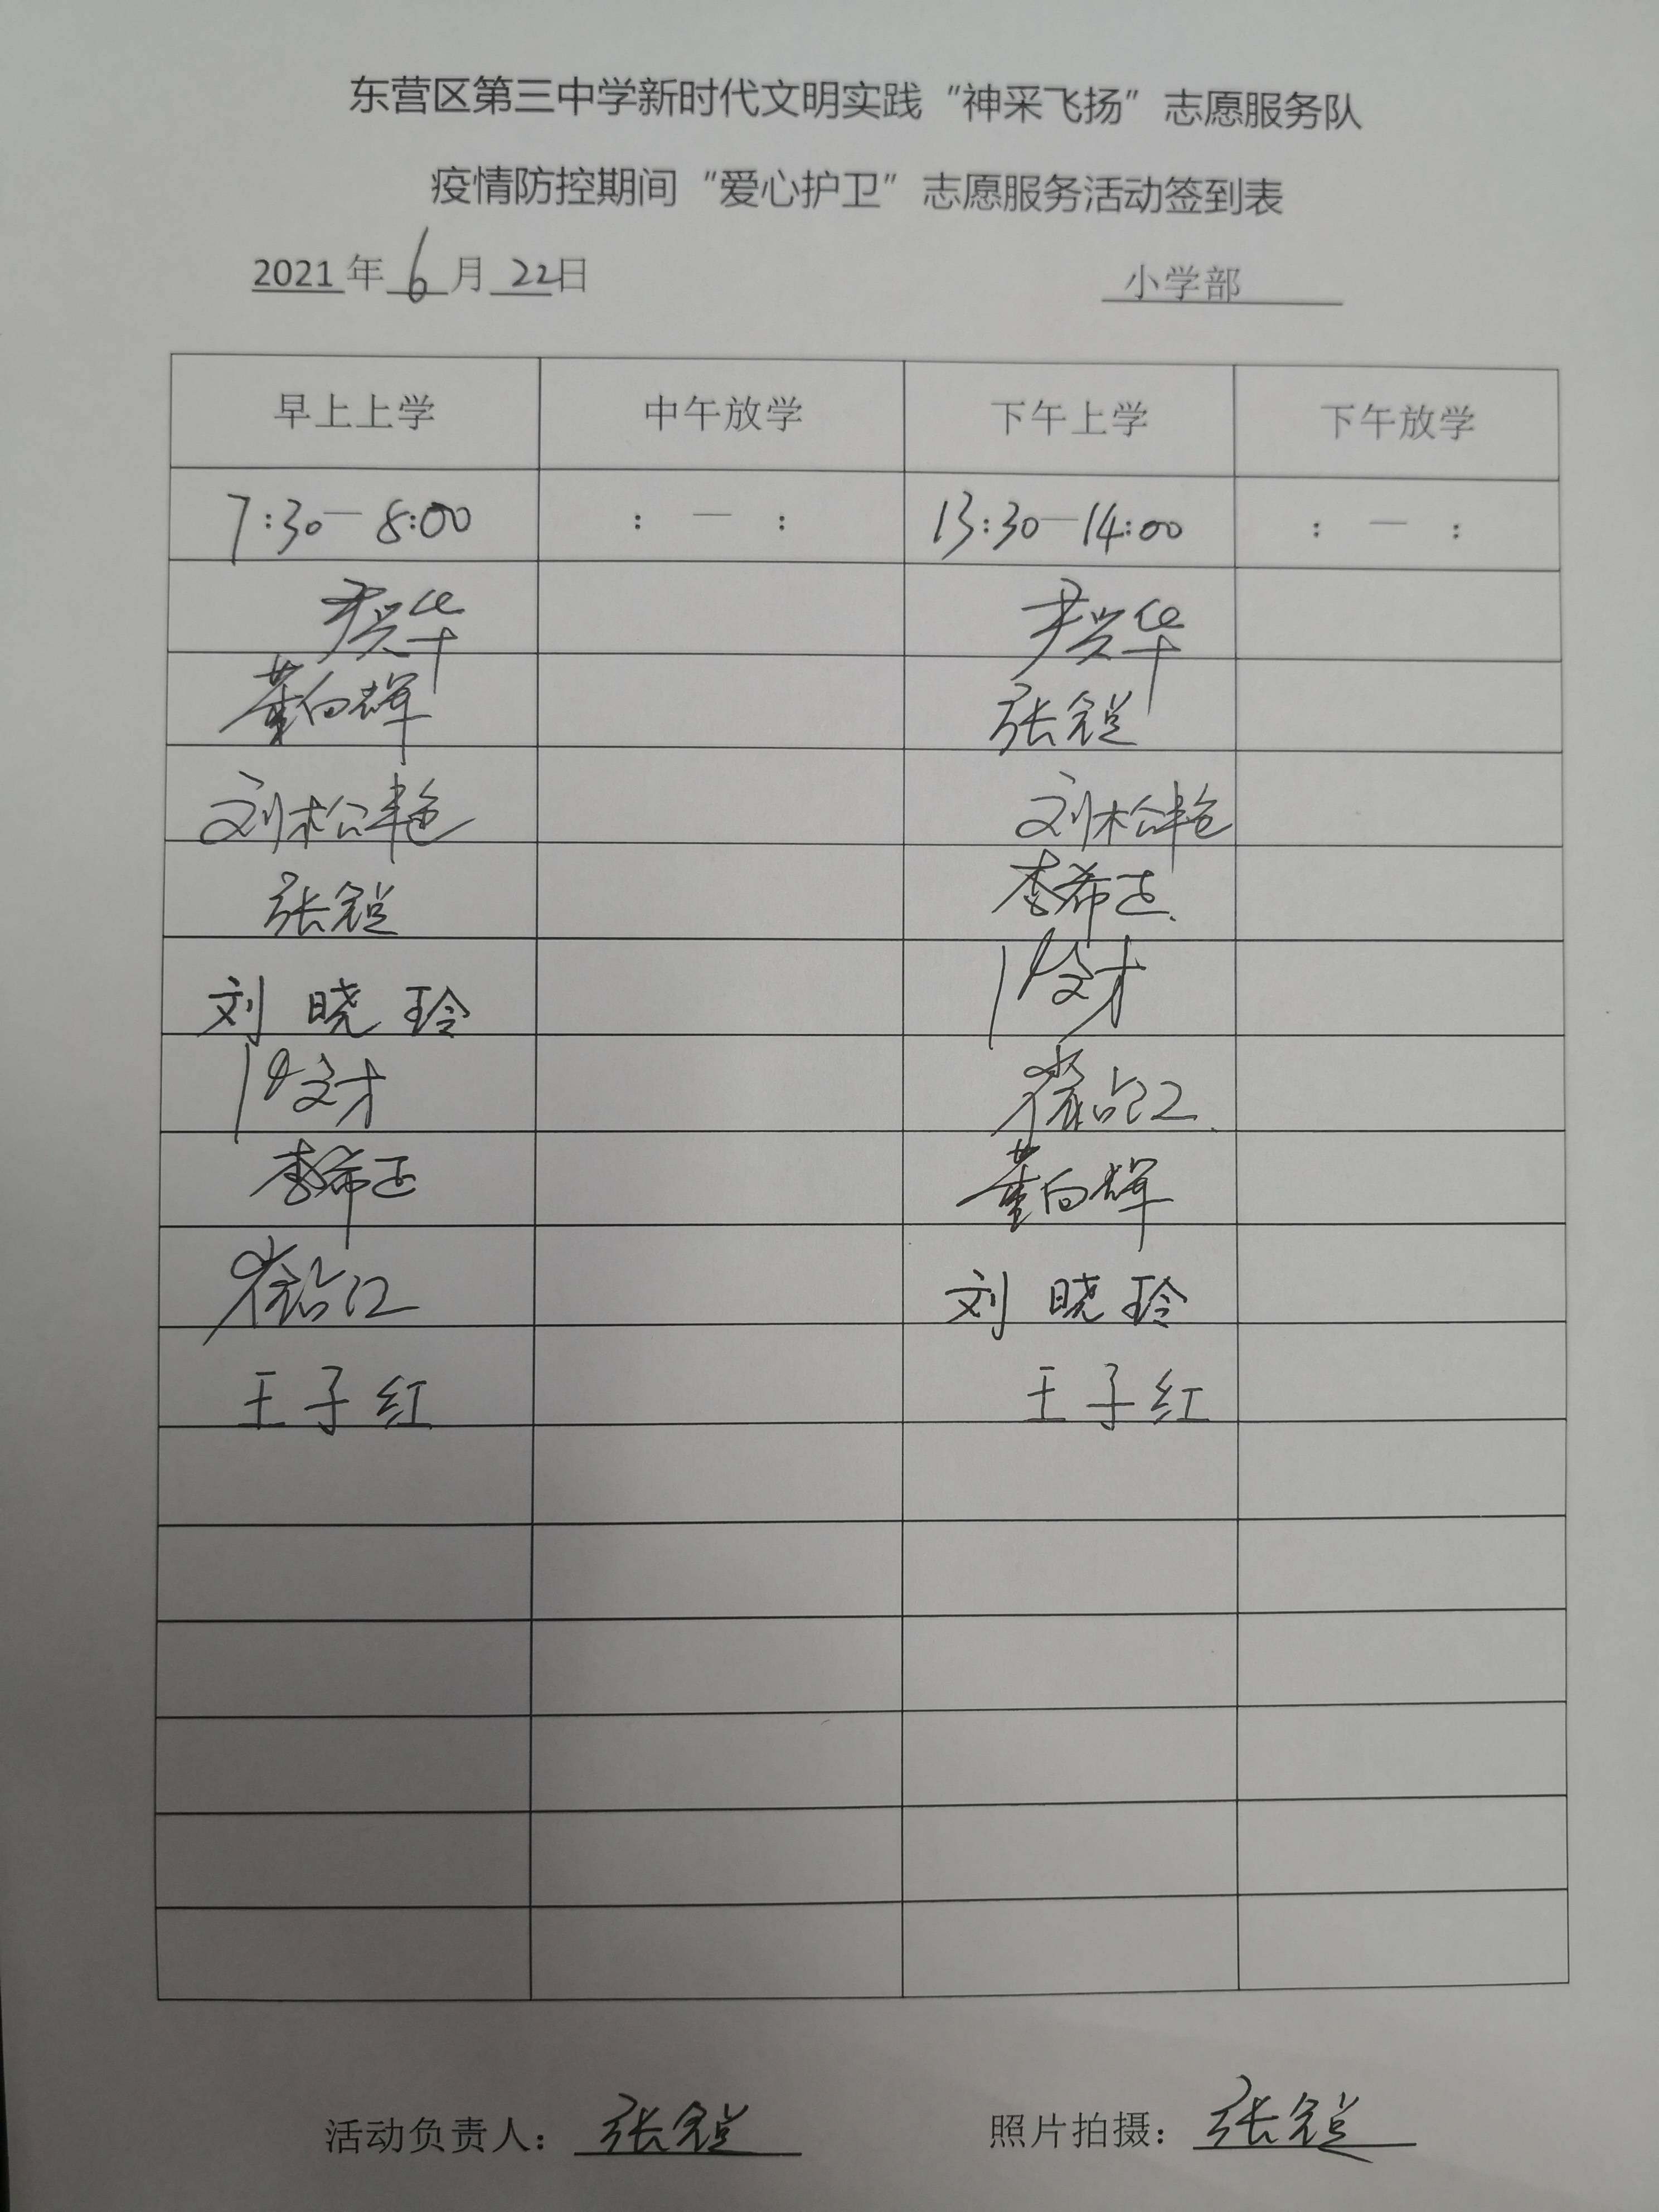 东营区第三中学新时代文明实践“神采飞扬”志愿服务队
疫情防控期间“爱心护卫”志愿服务活动签到表
2021年6月22日 小学部
早上上学 中午放学 下午上学 下午放学
7:30—8:00 : — : 13:30—14:00 : — :
尹兴华 尹兴华
董向辉 张铠
刘松艳 刘松艳
张铠 李希正
刘晓玲 文才
文才 占江
李希正 董向辉
占江 刘晓玲
王子红 王子红
活动负责人：张铠 照片拍摄：张铠